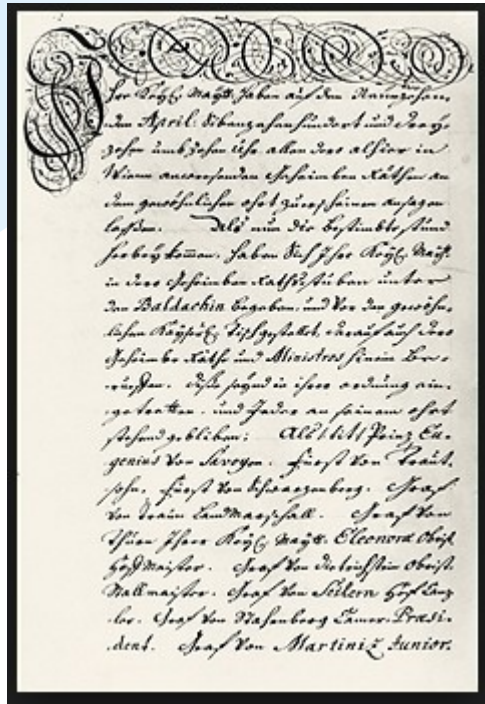 Ihro Kayl. Maytt. haben auf den Neunzehen-
den April Sibenzehenhundert und dreÿ-
zehen umb zehen Uhr allen dero alhier in
Wienn anwesenden Geheimben Räthen an
dem gewöhnlichen ohrt zuerscheinen ansagen
lassen. Als nun die bestimbte stund
herbeÿkom̅en, haben Sich Ihro Kayl. Maytt.
in dero Geheimben Rathsstuben unter
den Baldachin begeben, und vor den gewöhn-
lichen Kaÿserl. Tisch gestellet, darauf auch dero
Geheimbe Räthe und Ministros hinein be-
ruffen. Diese seÿnd in ihrer ordnung ein-
getretten, und Jeder an seinem ohrt
stehend gebliben: Als titl Prinz Eu-
genius von Savoyen. Fürst von Traut-
sohn, Fürst von Schwarzenberg. Graf
von Traun LandMarschall. Graf von
Thurn Ihrer Kayl. Maytt. Eleonora Obrist
HofMaister. Graf von Dietrichstein Obrist
Stallmaister. Graf von Seilern Hof Canz-
ler. Graf von Stahrenberg Camer-Præsi-
dent. Graf von Martiniz Junior.